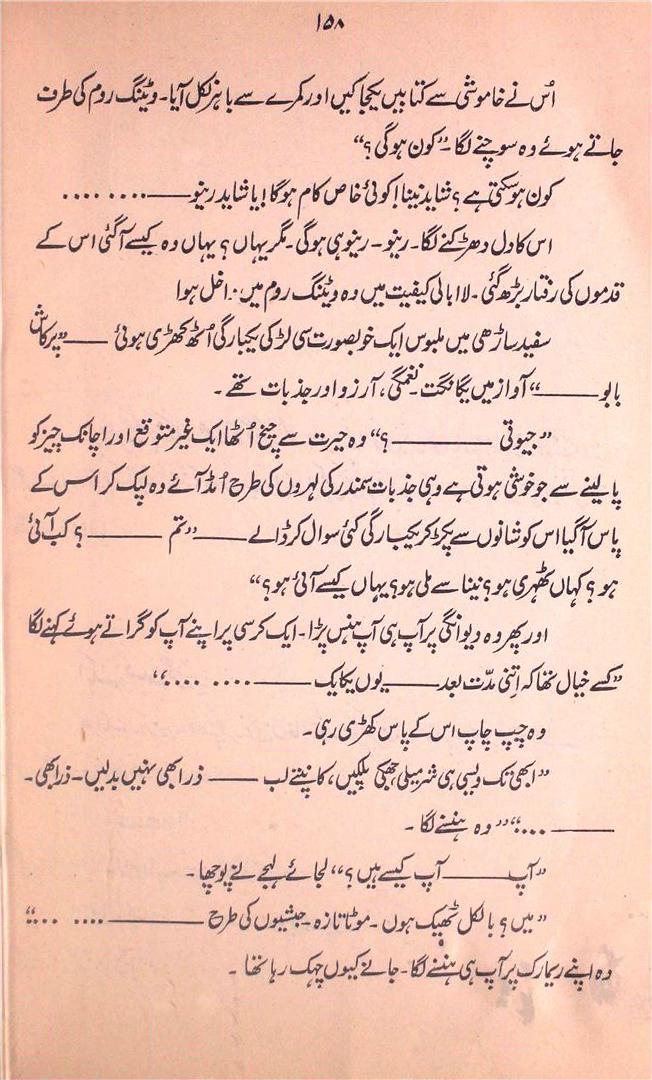 ۱۵۸
اُس نے خاموشی سے کتابیں یکجا کیں اور کمرے سے باہر نکل آیا۔ ویٹنگ روم کی طرف
جاتے ہوئے وہ سوچنے لگا۔ ”کون ہوگی؟“
کون ہو سکتی ہے؟ شاید نینا! کوئی خاص کام ہوگا! یا شاید رینو ——— ........
اس کا دل دھڑکنے لگا۔ رینو۔ رینو ہی ہوگی۔ مگر یہاں؟ یہاں وہ کیسے آگئی اس کے
قدموں کی رفتار بڑھ گئی۔ لاابالی کیفیت میں وہ ویٹنگ روم میں داخل ہوا
سفید ساڑھی میں ملبوس ایک خوبصورت سی لڑکی یکبارگی اُٹھ کھڑی ہوئی ——— ”پرکاش
بابو ———“ آواز میں یگانگت۔ نغمگی، آرزو اور جذبات تھے۔
”جیوتی ———؟“ وہ حیرت سے چیخ اُٹھا ایک غیر متوقع اور اچانک چیز کو
پا لینے سے جو خوشی ہوتی ہے وہی جذبات سمندر کی لہروں کی طرح اُمڈ آئے وہ لپک کر اس کے
پاس آگیا اس کو شانوں سے پکڑ کر یکبارگی کئی سوال کر ڈالے ——— ”تم ———؟ کب آئی
ہو؟ کہاں ٹھہری ہو؟ نینا سے ملی ہو؟ یہاں کیسے آئی ہو؟“
اور پھر وہ دیوانگی پر آپ ہی آپ ہنس پڑا۔ ایک کرسی پر اپنے آپ کو گراتے ہوئے کہنے لگا
”کسے خیال تھا کہ اتنی مدّت بعد ——— یوں یکایک ——— ........“
وہ چپ چاپ اس کے پاس کھڑی رہی۔
”ابھی تک ویسی ہی شرمیلی جھکی پلکیں، کانپتے لب ——— ذرا بھی نہیں بدلیں۔ ذرا بھی۔
——— ....“ وہ ہنسنے لگا۔
”آپ ——— آپ کیسے ہیں؟“ لجائے لہجے نے پوچھا۔
”میں؟ بالکل ٹھیک ہوں۔ موٹا تازہ۔ حبشیوں کی طرح ——— ........“
وہ اپنے ریمارک پر آپ ہی ہنسنے لگا۔ جانے کیوں چہک رہا تھا۔